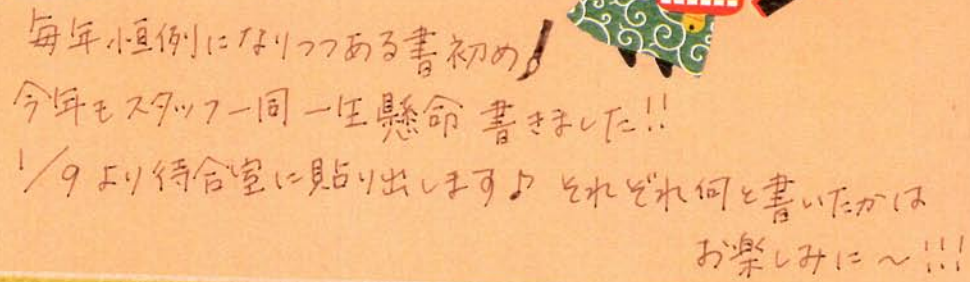 毎年恒例になりつつある書初め!
今年もスタッフ一同一生懸命書きました!!
1/9より待合室に貼り出します♪ それぞれ何と書いたかは
お楽しみに～!!!